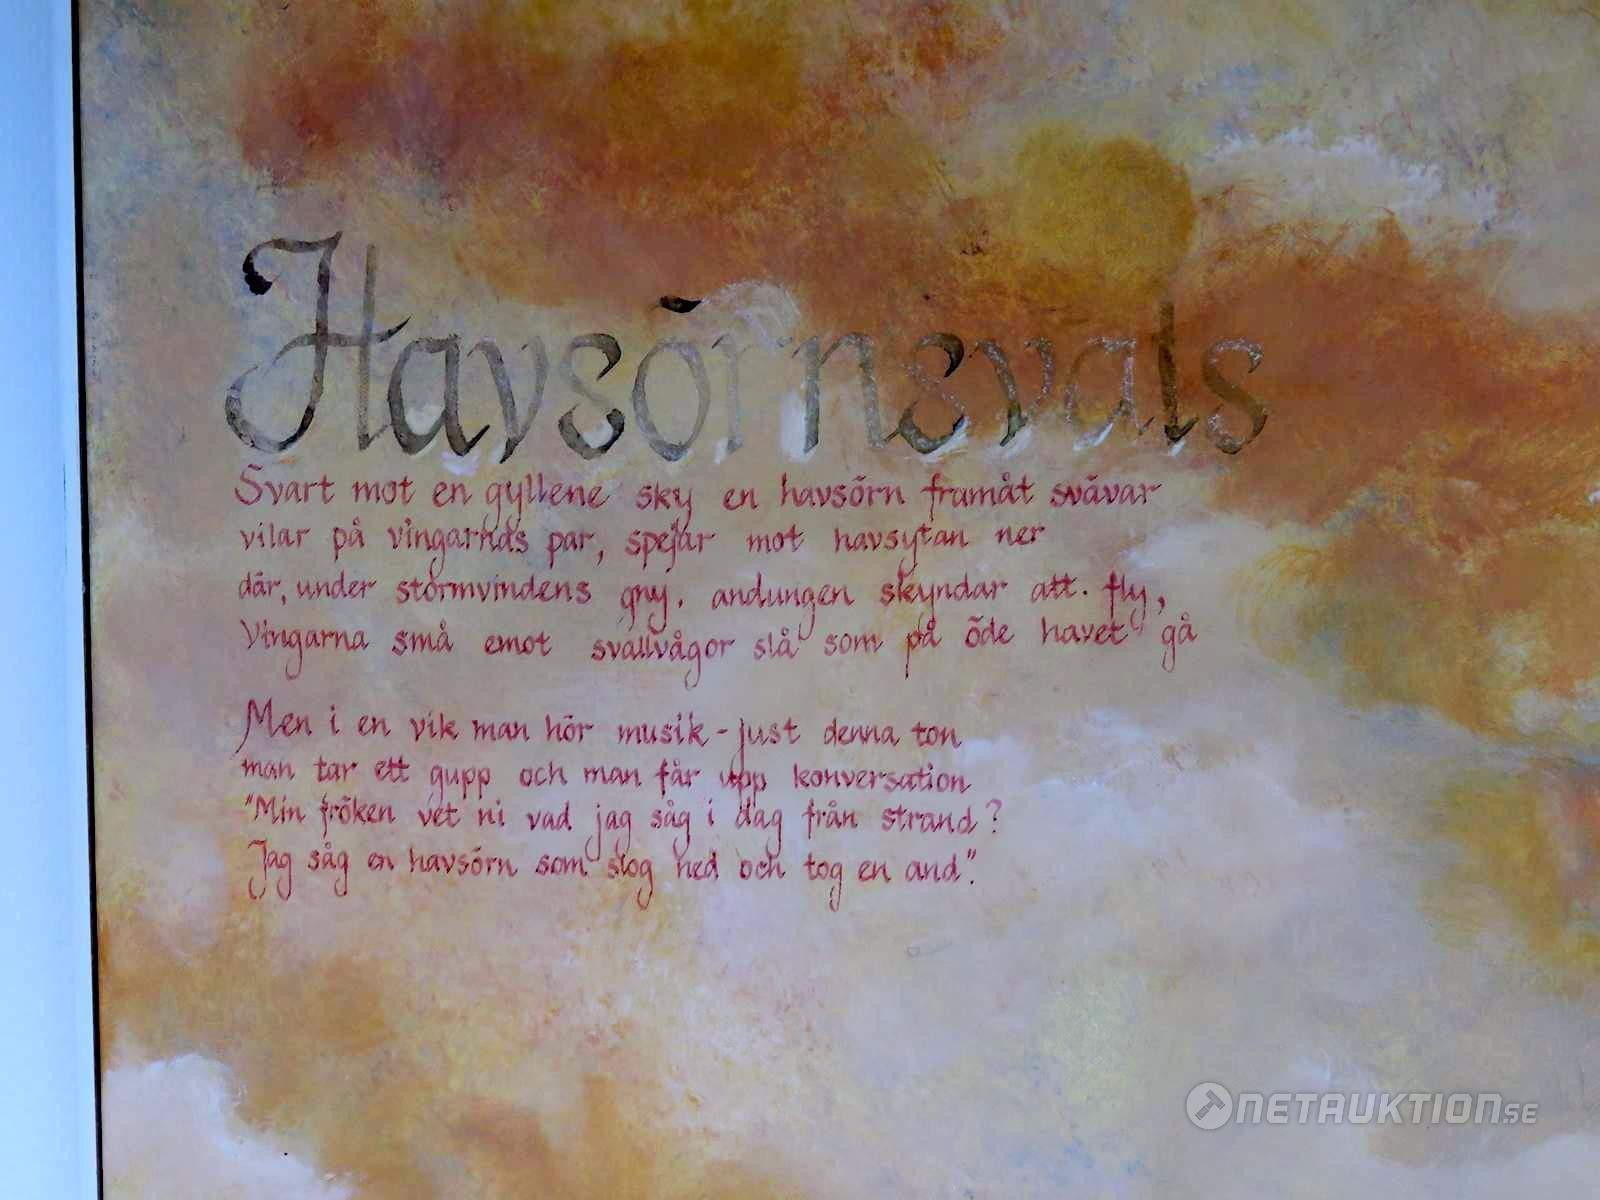 Havsörnsvals
Svart mot en gyllene sky en havsörn framåt svävar
vilar på vingarnas par, spejar mot havsytan ner
där, under stormvindens gny. andungen skyndar att. fly,
Vingarna små emot svallvågor slå som på öde havet gå
Men i en vik man hör musik - just denna ton
man tar ett gupp och man får upp konversation
"Min fröken vet ni vad jag såg i dag från strand?
Jag såg en havsörn som slog ned och tog en and".
NETAUKTION.SE